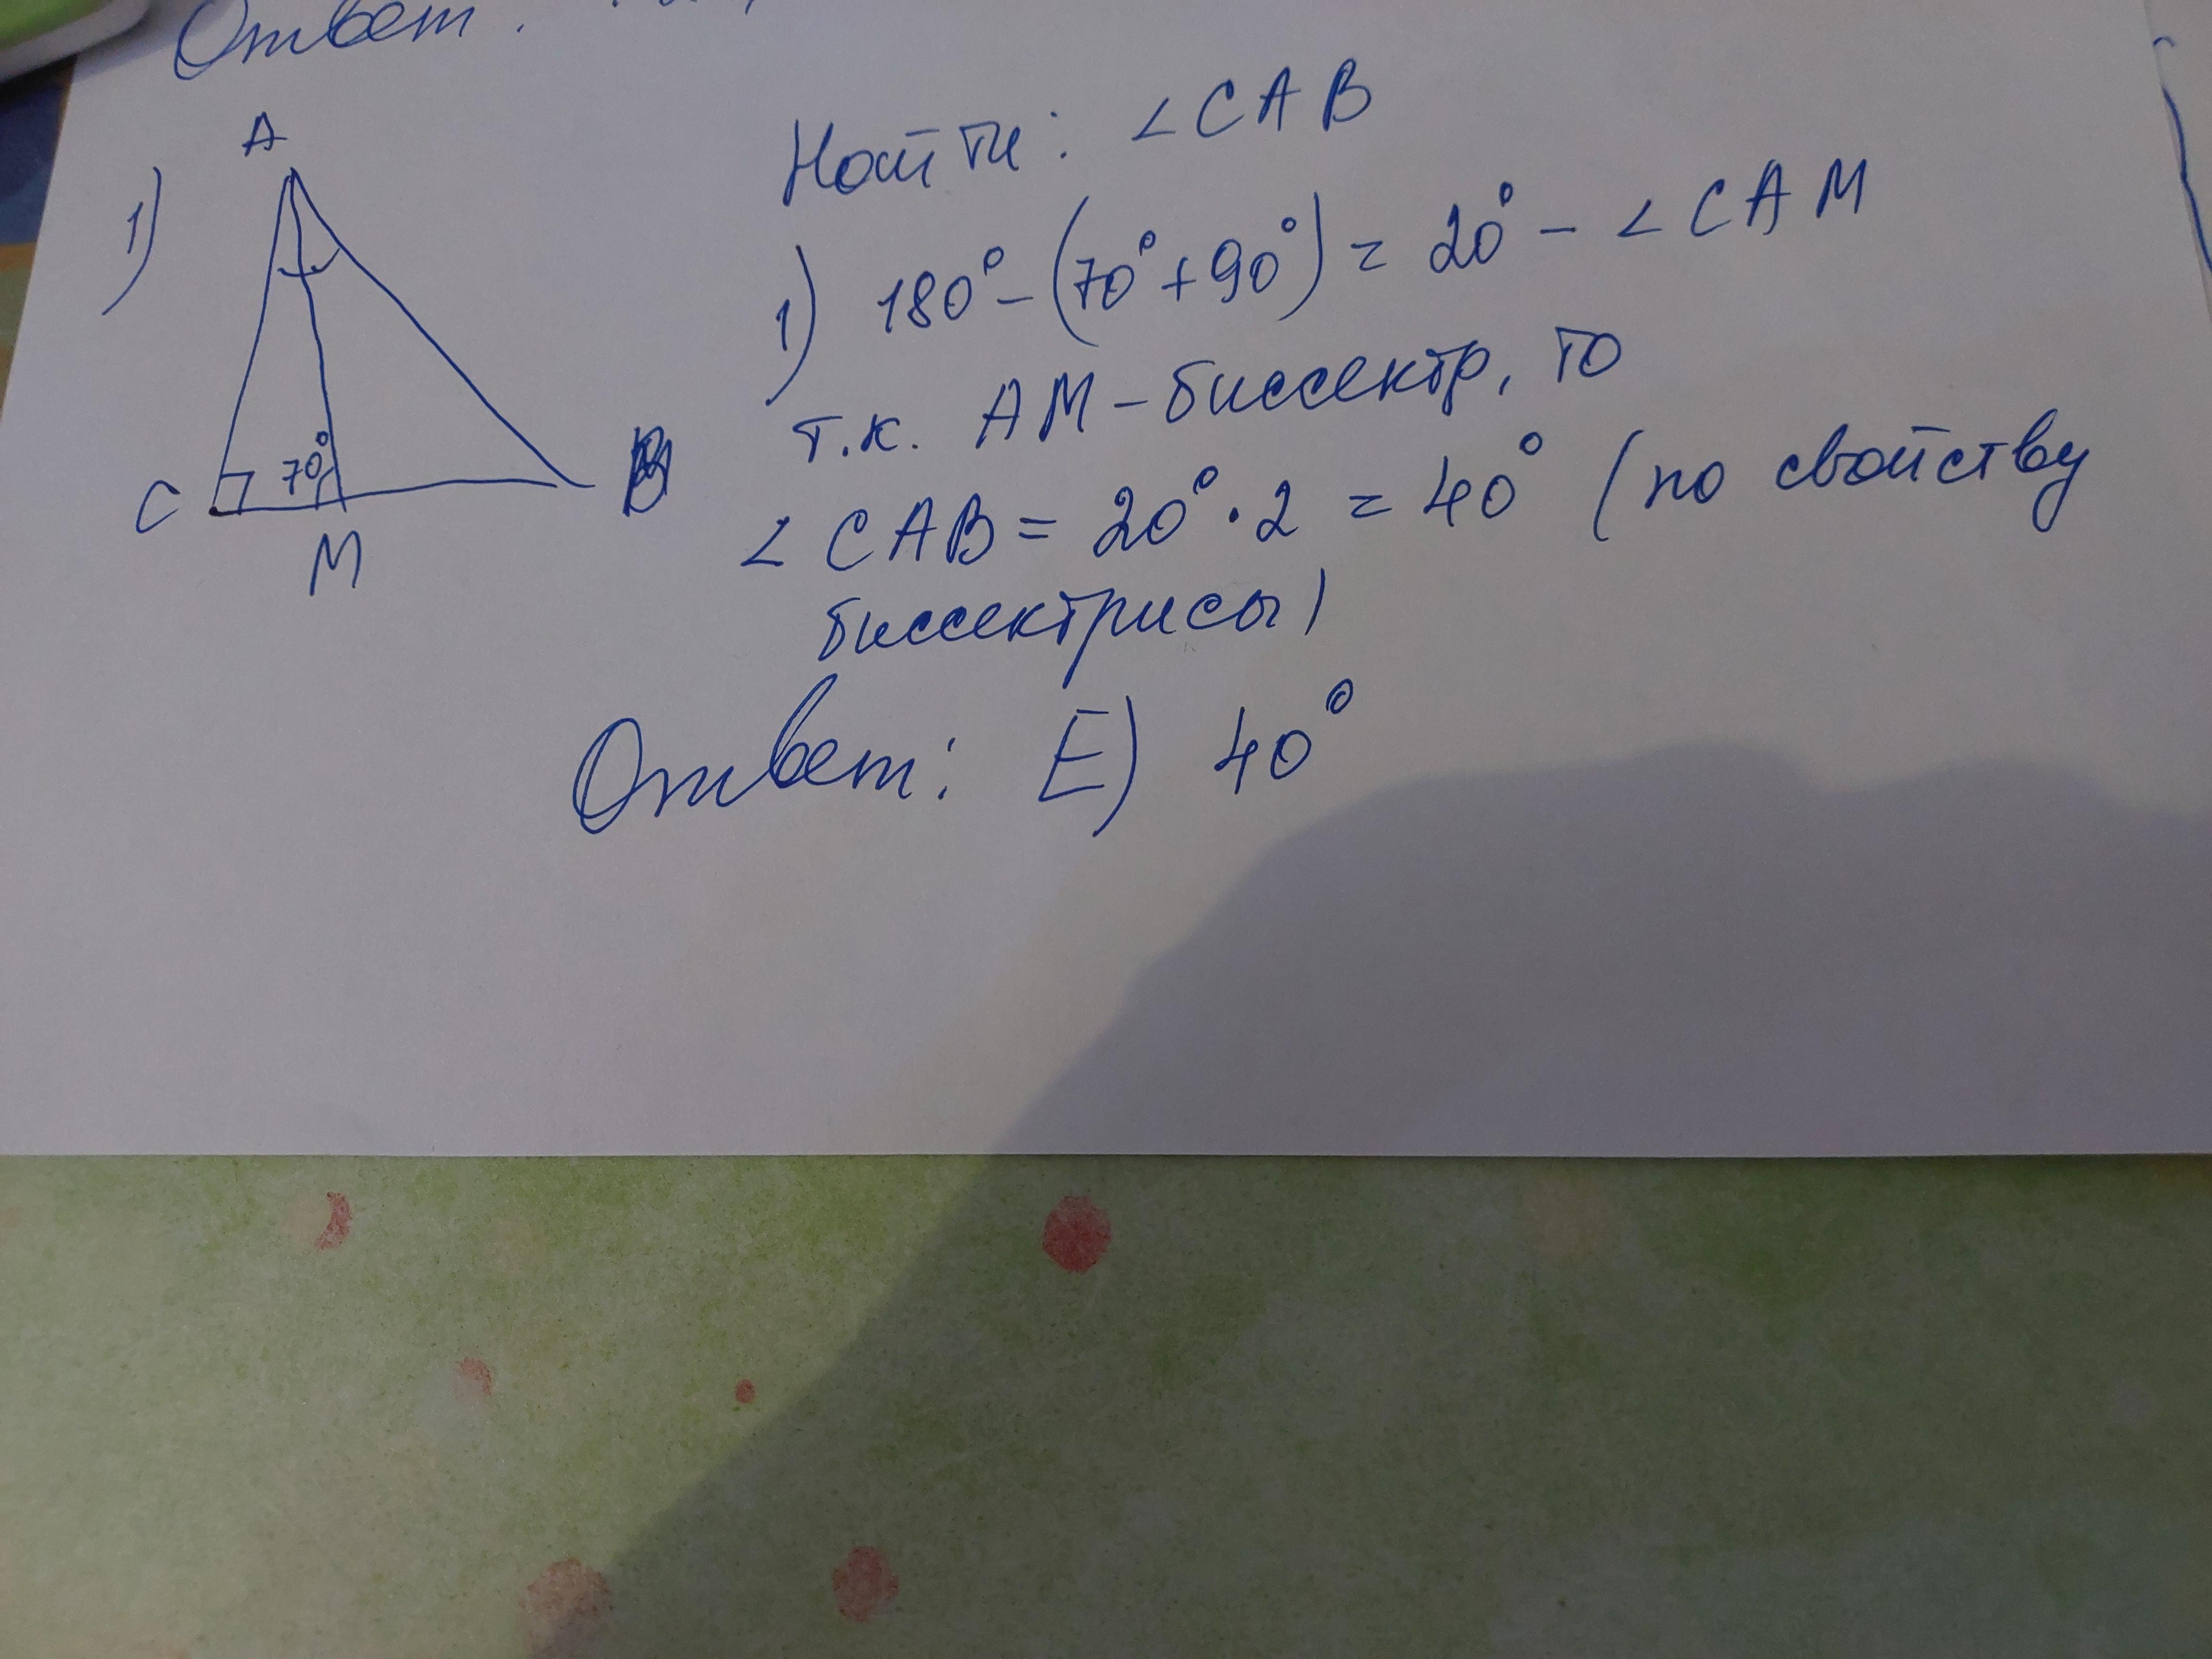 Ответ:
A
1)
70°
C
B
M
Найти: ∠CAB
1) 180° - (70° + 90°) = 20° - ∠CAM
т.к. AM - биссектр, то
∠CAB = 20° · 2 = 40° (по свойству
биссектрисы)
Ответ: E) 40°